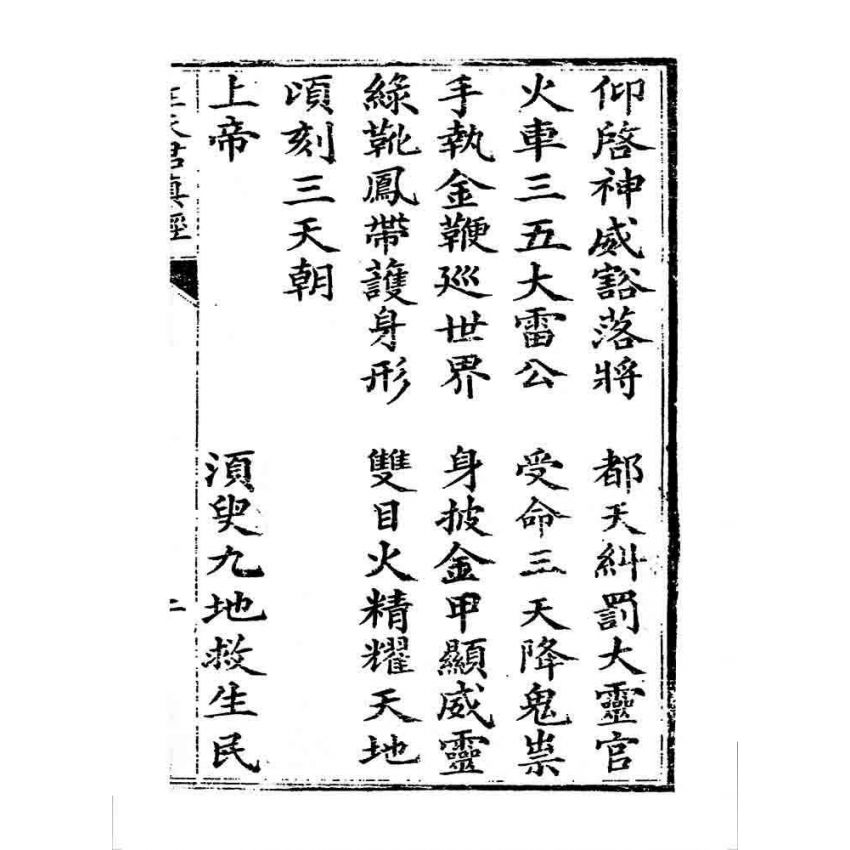 仰啓神威豁落將　都天糾罰大靈官
火車三五大雷公　受命三天降鬼祟
手執金鞭廵世界　身披金甲顯威靈
綠靴鳳帶護身形　雙目火精耀天地
頃刻三天朝
上帝　須臾九地救生民
王天君真經　二